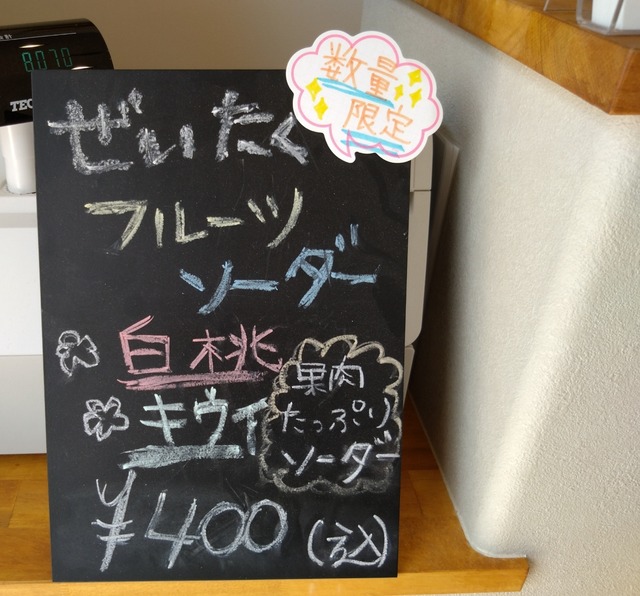 8070
TEC
数量
限定
ぜいたく
フルーツ
ソーダー
白桃
キウイ
果肉
たっぷり
ソーダー
¥400 (込)